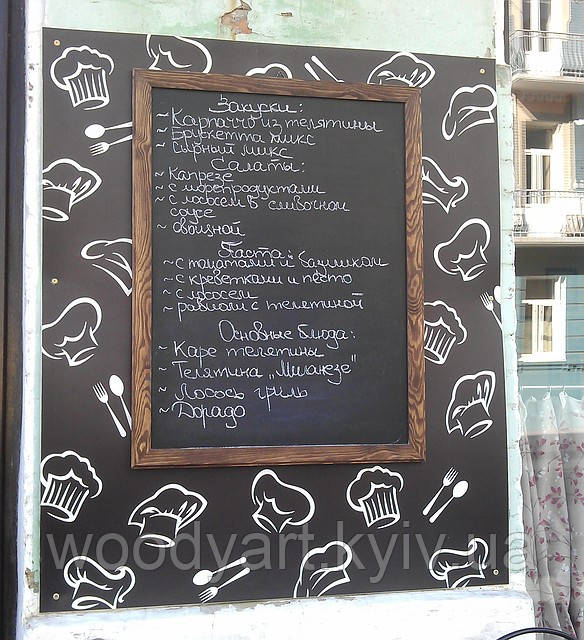 Закуски:
~ Карпаччо из телятины
~ Брускетта микс
~ Сырный микс
Салаты:
~ Капрезе
~ с морепродуктами
~ с лососем в сливочном
соусе
~ овощной
Паста:
~ с томатами и базиликом
~ с креветками и песто
~ с лососем
~ равиоли с телятиной
Основные блюда:
~ Каре телятины
~ Телятина „Миланезе"
~ Лосось гриль
~ Дорадо
woodyart.kyiv.ua